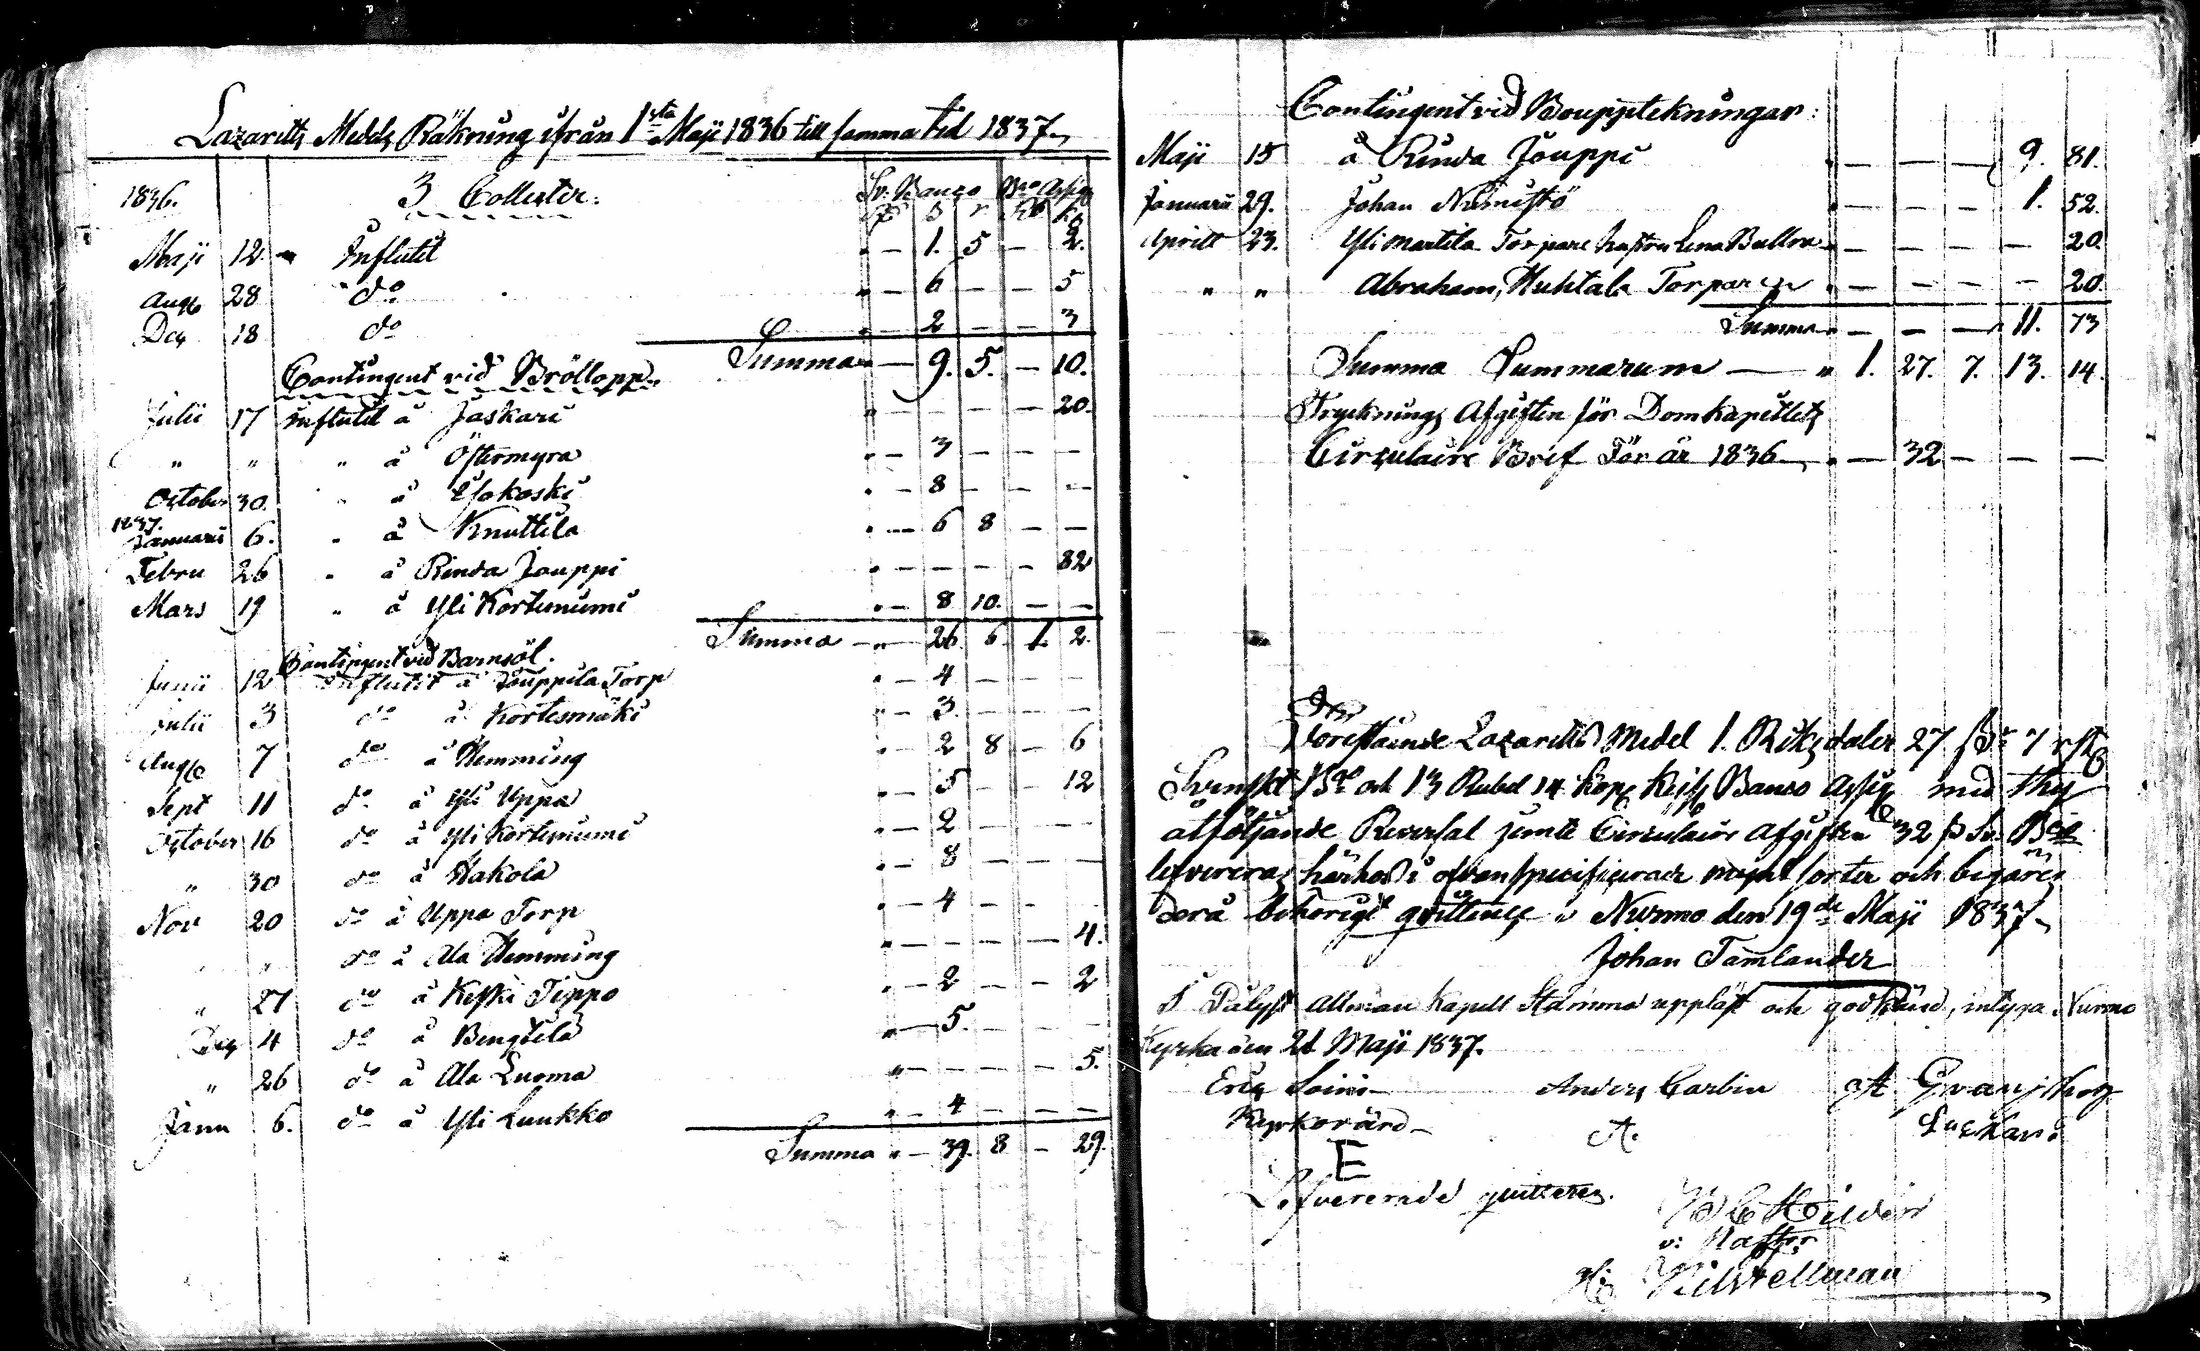 Lazaretts Medels Räkning ifrån 1sta Maji 1836 till samma tid 1837.
1836. 3 Collecter. Sv. Banco Bco Assig
Rd s r Rb k
Maji 12 Influtit " — 1. 5 — 2.
Aug 28 do " — 6 — — 5
Dec 18 do " — 2 — — 3
Summa " — 9. 5. — 10.
Contingent vid Bröllopp.
Julii 17 influtit å Jaskari " — — — — 20.
" " " å Östermyra " — 3 — — —
October 30. " å Ylakoski " — 8 — — —
1837.
Januarii 6. " å Knuttila " — 6 8 — —
Febru 26 " å Rinda Jouppi " — — — — 82
Mars 19 " å Yli Kortesniemi " — 8 10. — —
Summa — " — 26 6 1. 2.
Contingent vid Barnsöl.
Junii 12 Influtit å Jouppila Torp " — 4 — — —
Julii 3 do å Kortesmäki " — 3. — — —
Aug 7 do å Hemming " — 2 8 — 6
Sept 11 do å Yli Uppa " — 5 — — 12
October 16 do å Yli Kortesniemi " — 2 — — —
" 30 do å Hakola " — 8 — — —
Nov 20 do å Uppa Torp " — 4 — — —
" " do å Ala Hemming " — — — — 4.
" 27 do å Keski Tippo " — 2 — — 2
Dec 4 do å Bengtila " — 5. — — —
" 26 do å Ala Luoma " — — — — 5.
Janu 6. do å Yli Luukko " — 4 — — —
Summa " — 39. 8 — 29.
Contingent vid Bouppteckningar:
Maji 15 å Rinda Jouppi " — — — 9. 81.
Januarii 29. Johan Niemistö " — — — 1. 52.
Aprill 23. Yli Martila Torpare hustru Lena " — — — — 20.
" " Abraham, Huhtala Torparen " — — — — 20.
Summa " — — — 11. 73
Summa Summarum — " 1. 27. 7. 13. 14.
Trycknings Afgiften för Domkapitlets
Circulaire Bref För år 1836 " — 32 — — —
Förestående Lazaretts Medel 1. Riksdaler 27 s 7 rst
Svenskt Bco och 13 Rubel 14 kop Banco Assig med thy
åtföljande Reversal jemte Circulair Afgiften 32 s Sv. Bco
levereras härhos i ofvanspecificerade mynt sorter och begäres
derå behörigt quittence. Nurmo den 19de Maji 1837.
Johan Tamlander
I Pålyst Allman Kapell Stämma uppläst och godkänd, intyga. Nurmo
Kyrka den 21 Maji 1837.
Eric Soini Anders Carbin A
Kyrkovärd A.
E
Levererade quitteras.